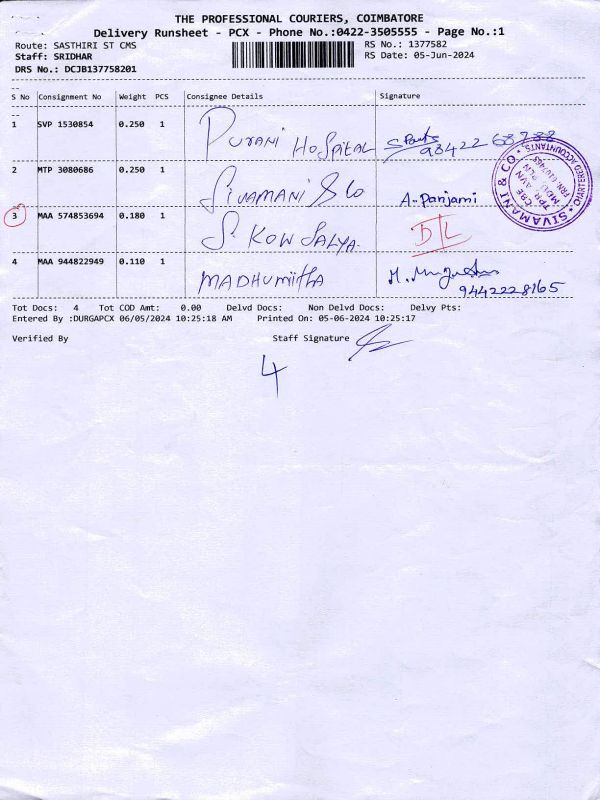 THE PROFESSIONAL COURIERS, COIMBATORE
Delivery Runsheet - PCX - Phone No.:0422-3505555 - Page No.:1
Route: SASTHIRI ST CMS RS No.: 1377582
Staff: SRIDHAR RS Date: 05-Jun-2024
DRS No.: DCJB137758201
S No Consignment No Weight PCS Consignee Details Signature
1 SVP 1530854 0.250 1 PURANI HOSPITAL
2 MTP 3080686 0.250 1 SIVAMANI & Co A. Panjami
3 MAA 574853694 0.180 1 S. KOWSALYA. D/L
4 MAA 944822949 0.110 1 MADHUMITHA
9442228165
SIVAMANI & CO. * CHARTERED ACCOUNTANTS *
Tot Docs: 4 Tot COD Amt: 0.00 Delvd Docs: Non Delvd Docs: Delvy Pts:
Entered By :DURGAPCX 06/05/2024 10:25:18 AM Printed On: 05-06-2024 10:25:17
Verified By Staff Signature
4